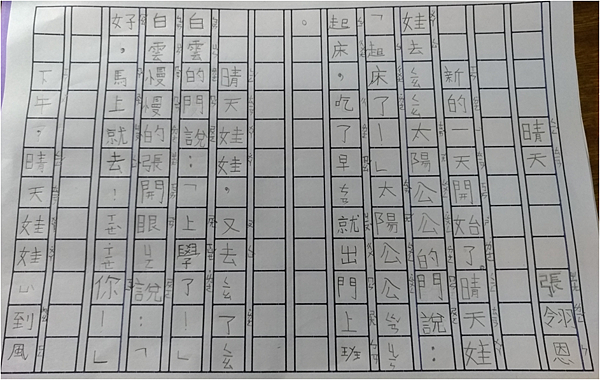 晴天
張翎恩
新的一天開始了。晴天娃
娃去ㄠㄠ太陽公公的門說：
「起床了！」太陽公公
起床，吃了早ㄘ就出門上班
。
晴天娃娃，又去ㄠ了ㄠ
白雲的門說：「上學了！」
白雲慢慢的張開眼ㄐ說：「
好，馬上就去！你！」
下午，晴天娃娃到風